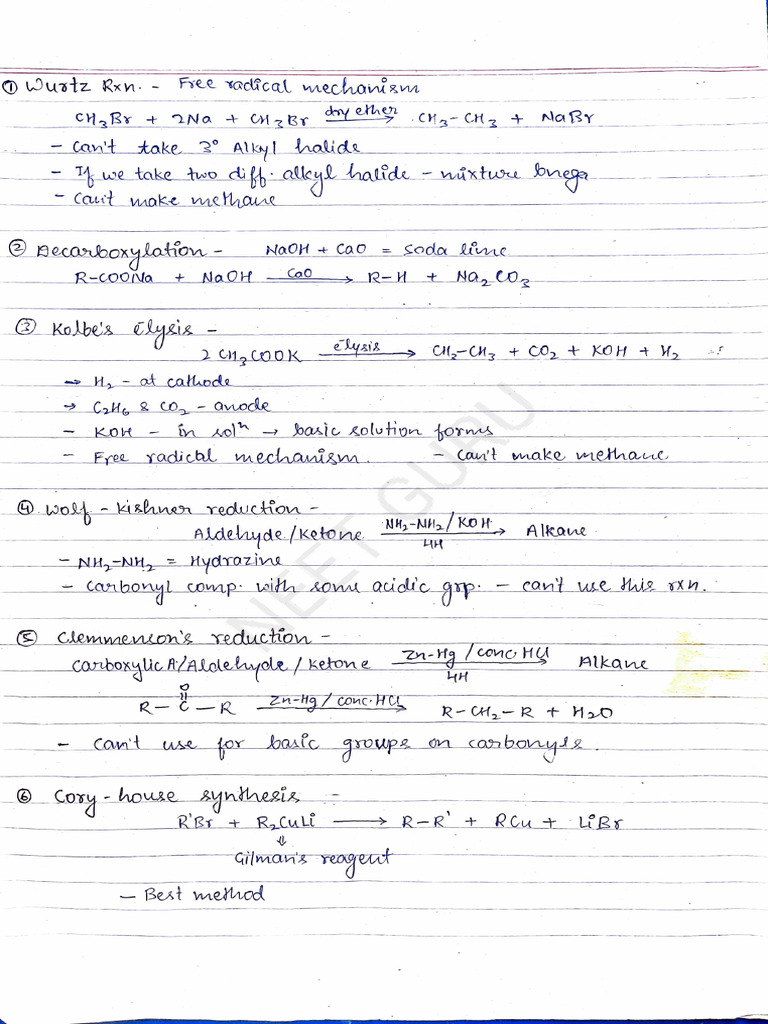 ① Wurtz Rxn. - Free radical mechanism
CH₃Br + 2Na + CH₃Br —dry ether→ CH₃-CH₃ + NaBr
- Can't take 3° Alkyl halide
- If we take two diff. alkyl halide - mixture bnega
- Can't make methane
② Decarboxylation - NaOH + CaO = soda lime
R-COONa + NaOH —CaO→ R-H + Na₂CO₃
③ Kolbe's Elysis -
2 CH₃COOK —elysis→ CH₃-CH₃ + CO₂ + KOH + H₂
→ H₂ - at cathode
→ C₂H₆ & CO₂ - anode
- KOH - in solⁿ → basic solution forms
- Free radical mechanism. - Can't make methane
④ Wolf - Kishner reduction -
Aldehyde/Ketone —NH₂-NH₂/KOH / 4H→ Alkane
- NH₂-NH₂ = Hydrazine
- Carbonyl comp. with some acidic grp. - can't use this rxn.
⑤ Clemmenson's reduction -
Carboxylic A./Aldehyde/Ketone —Zn-Hg/conc.HCl / 4H→ Alkane
O
||
R-C-R —Zn-Hg/conc.HCl→ R-CH₂-R + H₂O
- Can't use for basic groups on carbonyls.
⑥ Cory-house synthesis :-
R'Br + R₂CuLi ⟶ R-R' + RCu + LiBr
⇓
Gilman's reagent
- Best method
NEET GURU